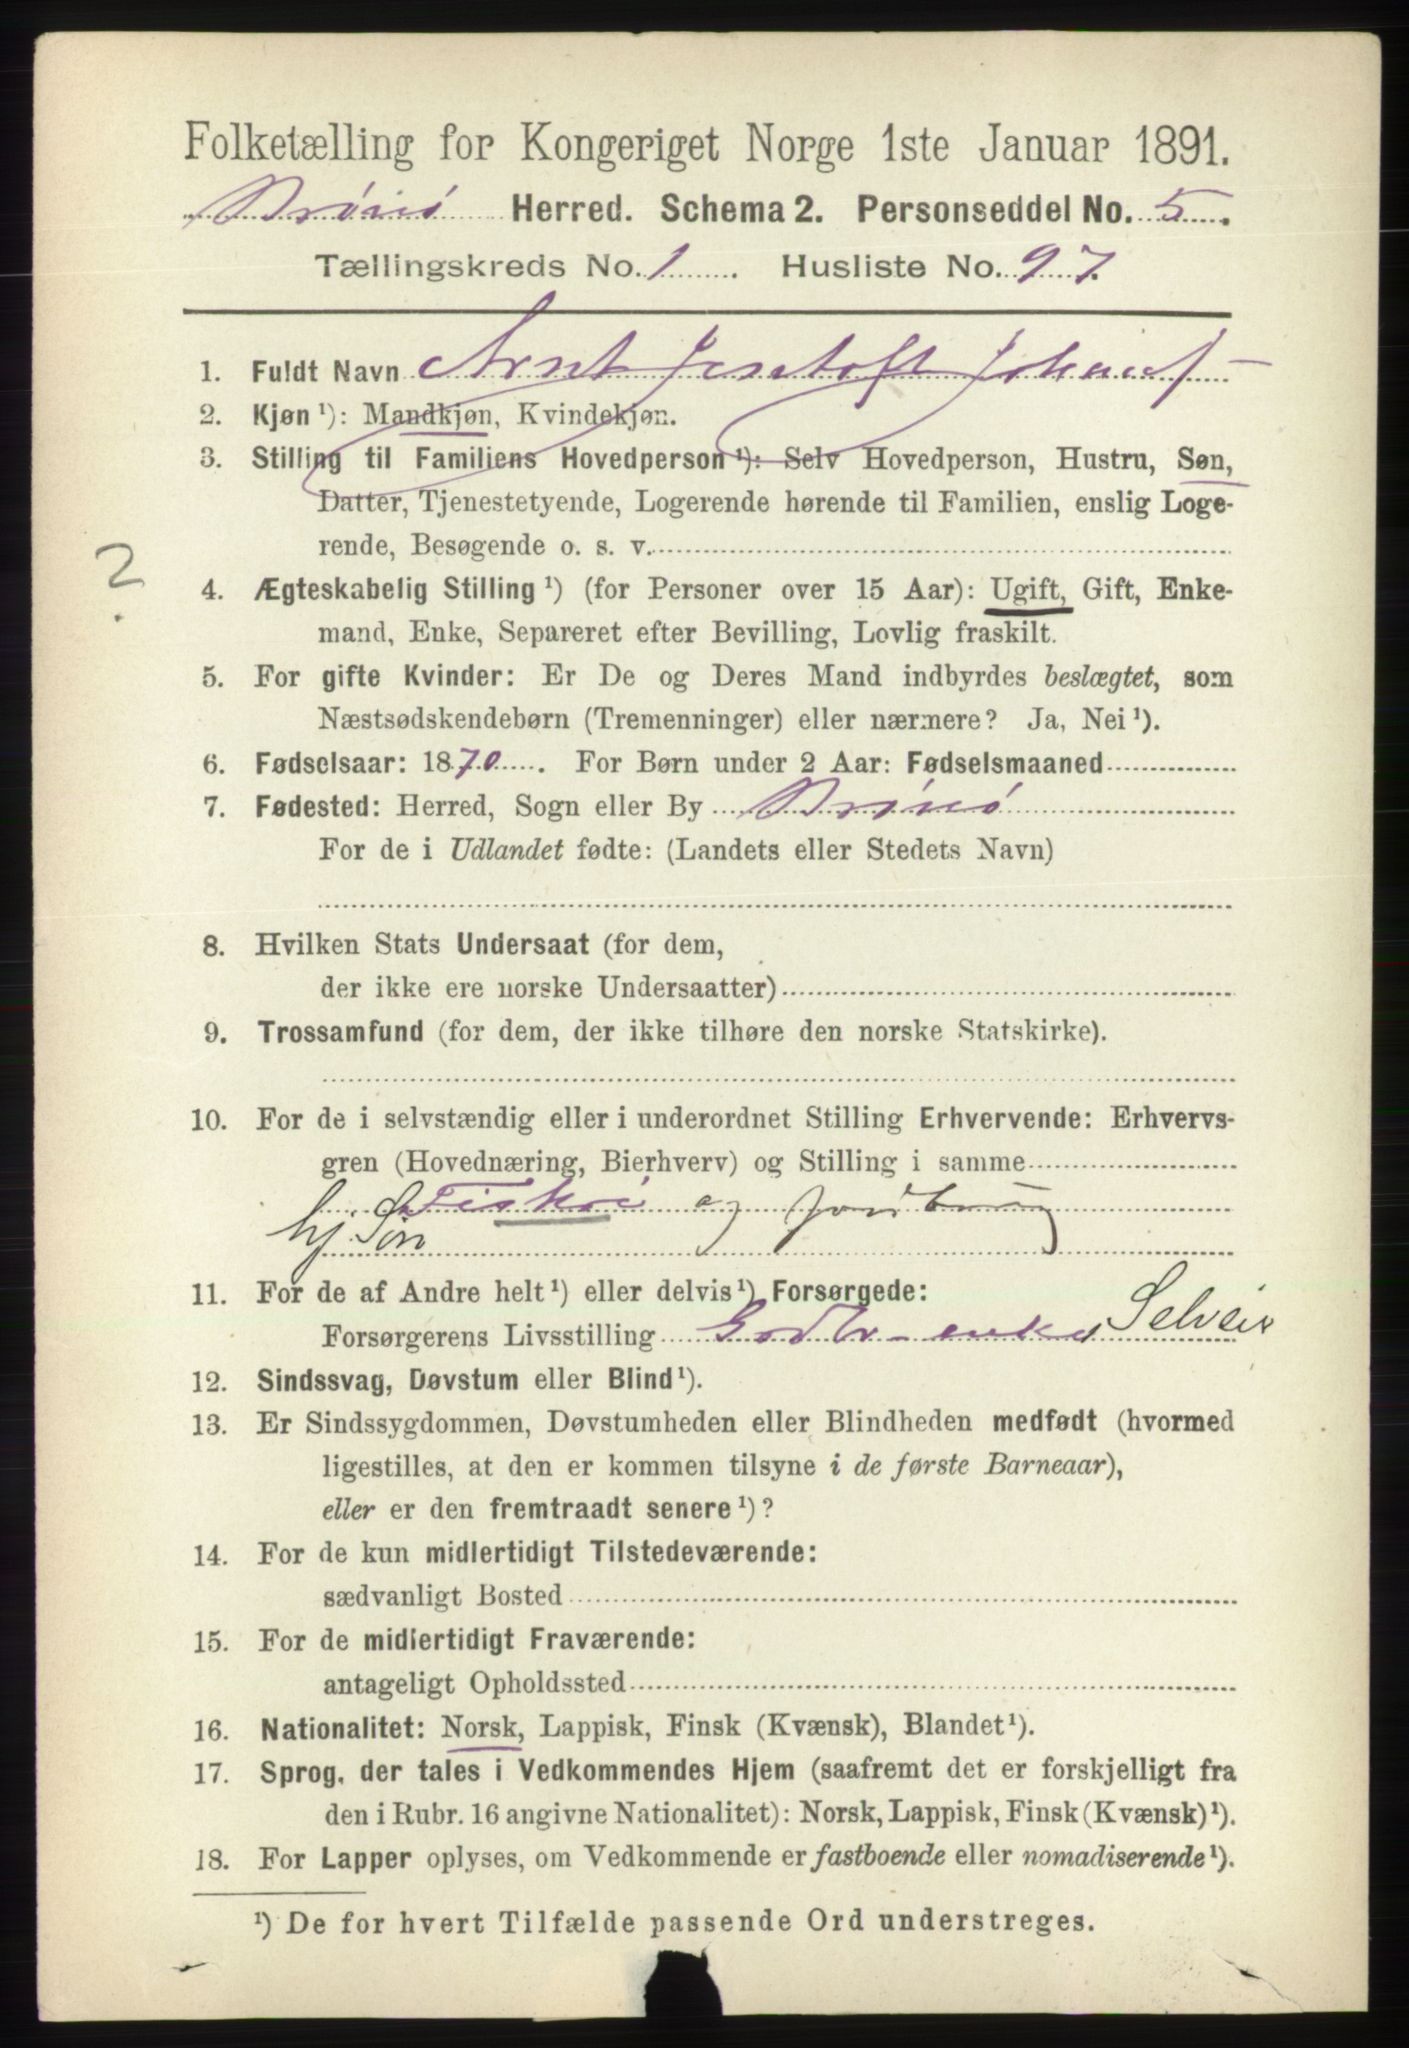 Folketælling for Kongeriget Norge 1ste Januar 1891.
Brönö Herred. Schema 2. Personseddel No. 5.
Tællingskreds No. 1. Husliste No. 97.
1. Fuldt Navn Arnt Jentoft Johans
2. Kjøn ¹): Mandkjøn, Kvindekjøn.
3. Stilling til Familiens Hovedperson ¹): Selv Hovedperson, Hustru, Søn,
Datter, Tjenestetyende, Logerende hørende til Familien, enslig Loge-
rende, Besøgende o. s. v.
?
4. Ægteskabelig Stilling ¹) (for Personer over 15 Aar): Ugift, Gift, Enke-
mand, Enke, Separeret efter Bevilling, Lovlig fraskilt.
5. For gifte Kvinder: Er De og Deres Mand indbyrdes beslægtet, som
Næstsødskendebørn (Tremenninger) eller nærmere? Ja, Nei ¹).
6. Fødselsaar: 1870. For Børn under 2 Aar: Fødselsmaaned
7. Fødested: Herred, Sogn eller By Brönö
For de i Udlandet fødte: (Landets eller Stedets Navn)
8. Hvilken Stats Undersaat (for dem,
der ikke ere norske Undersaatter)
9. Trossamfund (for dem, der ikke tilhøre den norske Statskirke).
10. For de i selvstændig eller i underordnet Stilling Erhvervende: Erhvervs-
gren (Hovednæring, Bierhverv) og Stilling i samme
Fiskeri og jordbrug
hj Søn
11. For de af Andre helt ¹) eller delvis ¹) Forsørgede:
Forsørgerens Livsstilling Gadbr enke Selveier
12. Sindssvag, Døvstum eller Blind ¹).
13. Er Sindssygdommen, Døvstumheden eller Blindheden medfødt (hvormed
ligestilles, at den er kommen tilsyne i de første Barneaar),
eller er den fremtraadt senere ¹)?
14. For de kun midlertidigt Tilstedeværende:
sædvanligt Bosted
15. For de midlertidigt Fraværende:
antageligt Opholdssted
16. Nationalitet: Norsk, Lappisk, Finsk (Kvænsk), Blandet ¹).
17. Sprog, der tales i Vedkommendes Hjem (saafremt det er forskjelligt fra
den i Rubr. 16 angivne Nationalitet): Norsk, Lappisk, Finsk (Kvænsk) ¹).
18. For Lapper oplyses, om Vedkommende er fastboende eller nomadiserende ¹).
¹) De for hvert Tilfælde passende Ord understreges.